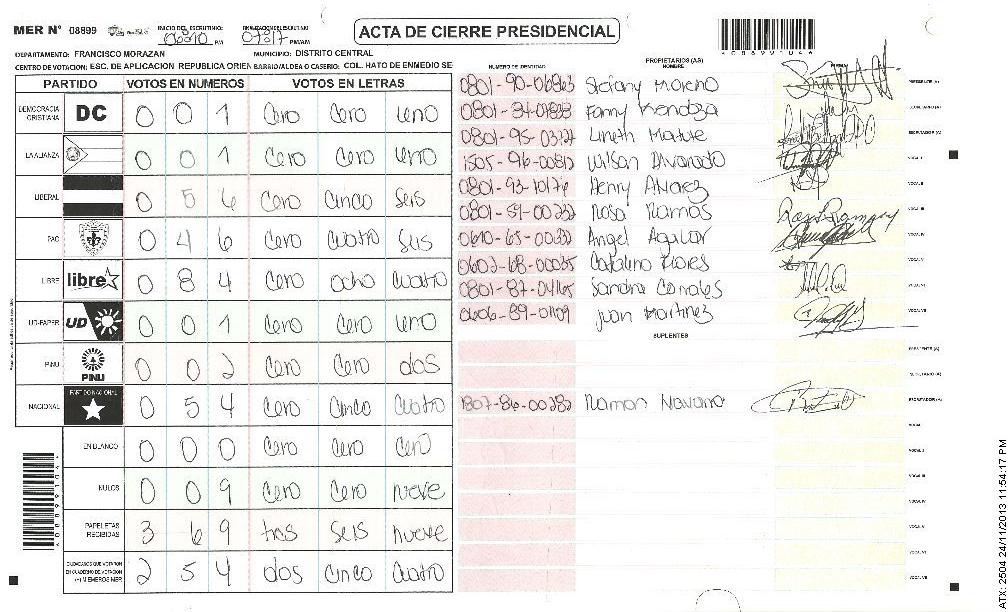 MER Nº 08899
INICIO DEL ESCRUTINIO: PM
PM/AM
ACTA DE CIERRE PRESIDENCIAL
DEPARTAMENTO: FRANCISCO MORAZAN MUNICIPIO: DISTRITO CENTRAL
CENTRO DE VOTACION: ESC. DE APLICACION REPUBLICA ORIEN BARRIO/ALDEA O CASERIO: COL. HATO DE ENMEDIO SE
PARTIDO VOTOS EN NUMEROS VOTOS EN LETRAS
DEMOCRACIA CRISTIANA DC 0 0 1 Cero Cero uno
LA ALIANZA 0 0 1 Cero Cero uno
LIBERAL 0 5 6 Cero Cinco Seis
PAC 0 4 6 Cero Cuatro Seis
LIBRE libre 0 8 4 Cero ocho Cuatro
UD-FAPER UD 0 0 1 Cero Cero uno
PINU PINU 0 0 2 Cero Cero dos
NACIONAL PARTIDO NACIONAL 0 5 4 Cero Cinco Cuatro
EN BLANCO 0 0 0 Cero Cero Cero
NULOS 0 0 9 Cero Cero nueve
PAPELETAS RECIBIDAS 3 6 9 tres seis nueve
CIUDADANOS QUE VOTARON EN CUADERNO DE VOTACION (+) MIEMBROS MER 2 5 4 dos Cinco Cuatro
PROPIETARIOS (AS)
NUMERO DE IDENTIDAD NOMBRE FIRMA
Stefany Moreno PRESIDENTE (A)
Fanny Mendoza SECRETARIO (A)
0801-95-03727 Lineth Matute ESCRUTADOR (A)
1505-96-00810 Wilson Alvarado VOCAL I
0801-93-10176 Henry Alvarez VOCAL II
0801-59-00232 Rosa Ramos VOCAL III
0610-65-00232 Angel Aguilar VOCAL IV
Catalino Flores VOCAL V
0801-87-04165 Sandra Corrales VOCAL VI
0606-89-01109 Juan Martinez VOCAL VII
SUPLENTES
PRESIDENTE (A)
SECRETARIO (A)
1807-86-00282 Ramon Navarro ESCRUTADOR (A)
VOCAL I
VOCAL II
VOCAL III
VOCAL IV
VOCAL V
VOCAL VI
VOCAL VII
ATX: 2504 24/11/2013 11:54:17 PM